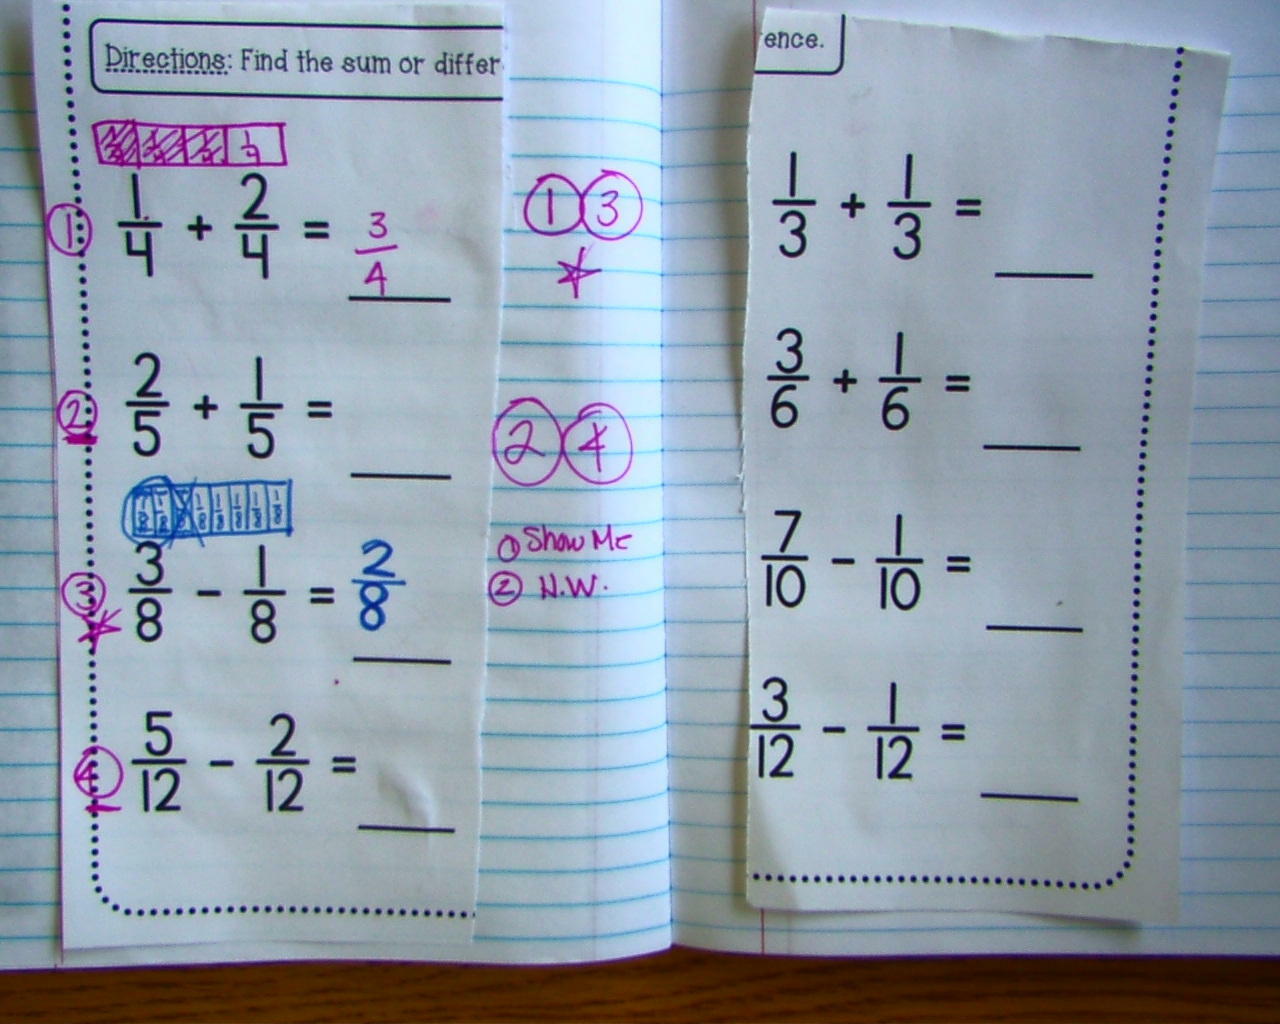 Directions: Find the sum or differ
1/4
① 1/4 + 2/4 = 3/4
② 2/5 + 1/5 = ____
1/8 1/8 1/8 1/8 1/8 1/8 1/8 1/8
③ 3/8 - 1/8 = 2/8
④ 5/12 - 2/12 = ____
① ③
② ④
① Show Me
② H.W.
ence.
1/3 + 1/3 = ____
3/6 + 1/6 = ____
7/10 - 1/10 = ____
3/12 - 1/12 = ____